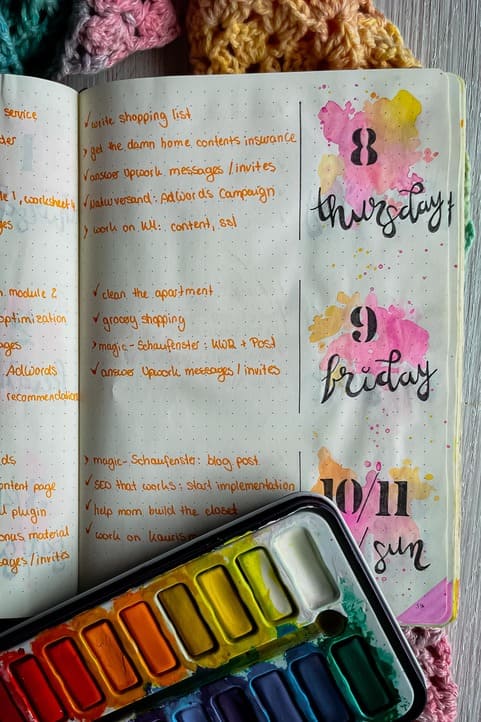 service
✓ write shopping list
> get the damn home contents insurance
✓ answer Upwork messages/invites
✓ Naturversand: AdWords Campaign
> work on KH: content, ssl
8
thursday
le 1, worksheet 4
ges
module 2
optimization
ages
AdWords
recommendation
✓ clean the apartment
✓ grocery shopping
> magic-Schaufenster: KWR + Post
✓ answer Upwork messages/invites
9
friday
ds
ontent page
l plugin
onus material
sages/invites
> magic-Schaufenster: blog post
✓ SEO that works: start implementation
✓ help mom build the closet
✓ work on Kauris
10/11
/sun